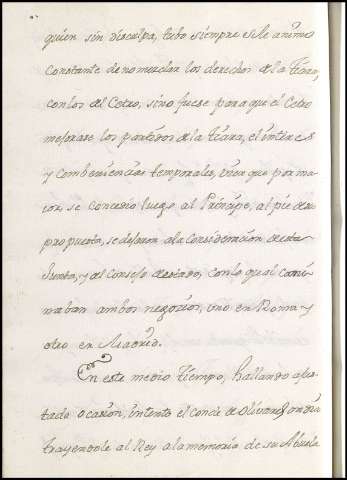 quien sin disculpa, tubo siempre este animo
constante de no mezclar los derechos de la Tiara,
con los del Cetro, sino fuese para que el Cetro
mejorase los partidos de la Tiara, el interes
y combeniencias temporales, bien que por ma
ior, se concedio luego al Principe, al pie de la
propuesta, se dejaron a la consideracion de esta
Junta, y del Consejo de estado, con lo qual cami
naban ambos negocios, uno en Roma y
otro en Madrid.
En este medio tiempo, hallando apar
tada ocasion, intento el conde de Olivares
trayendole al Rey a la memoria de su Abuelo